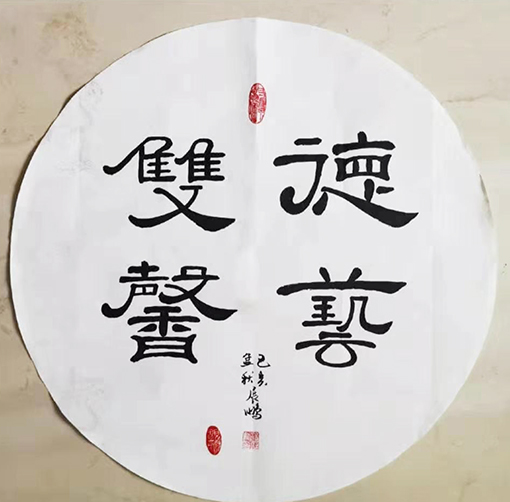 德藝
雙馨
己亥
秋